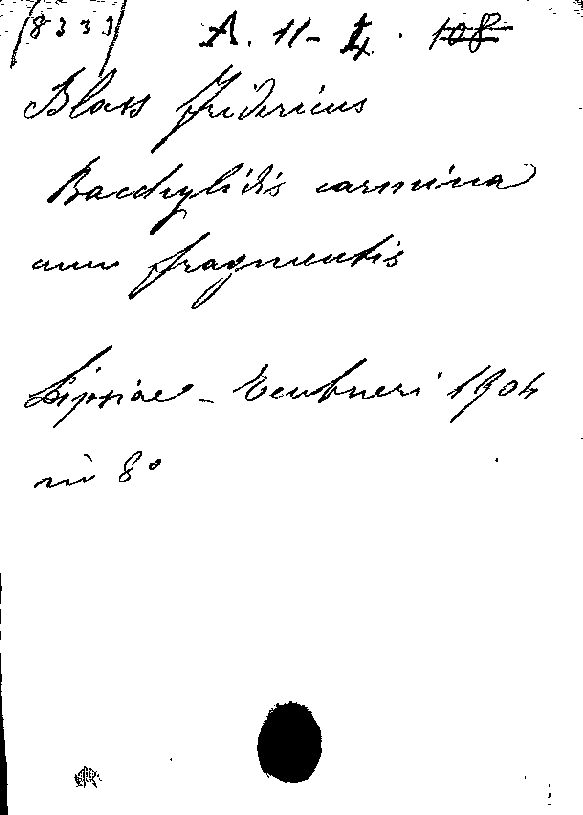 (8333) A. 11 - 4. 108
Blass Fridericus
Bacchylidis carmina
cum fragmentis
Lipsiae - Teubneri 1904
in 8°